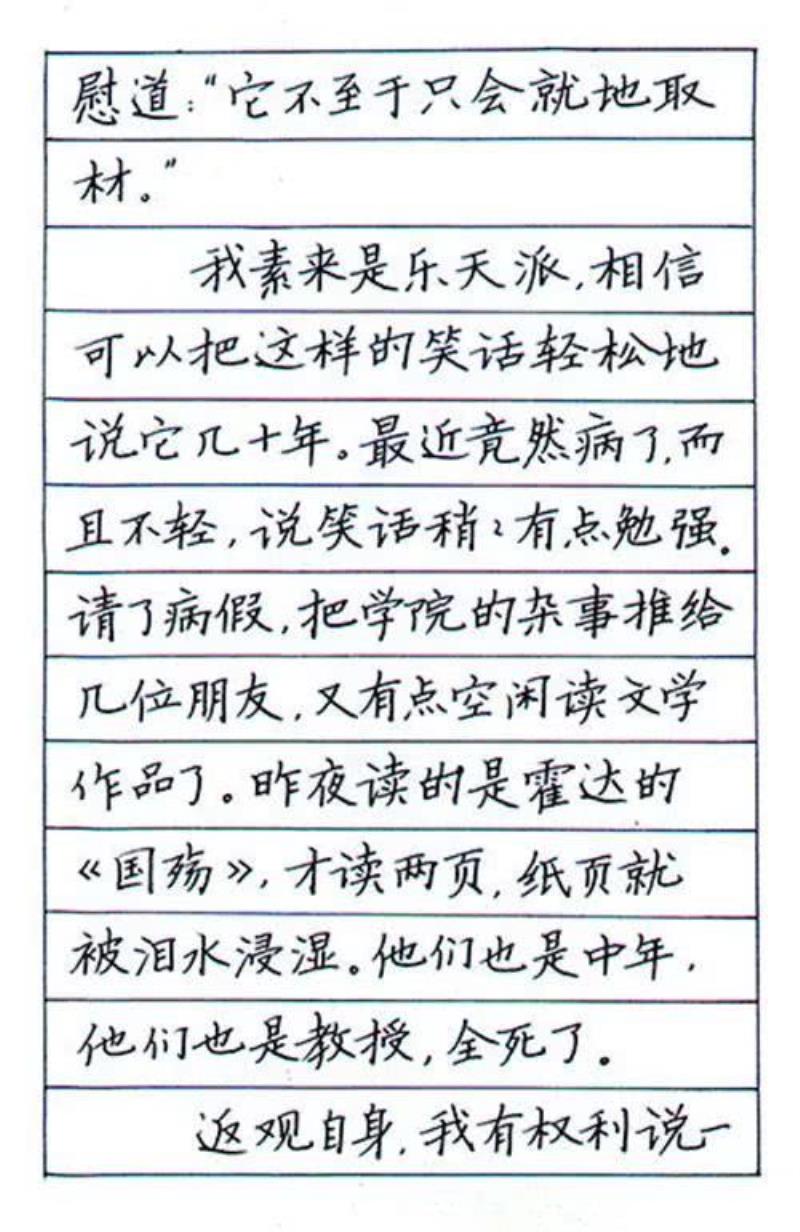 慰道：“它不至于只会就地取
材。”
我素来是乐天派，相信
可以把这样的笑话轻松地
说它几十年。最近竟然病了，而
且不轻，说笑话稍稍有点勉强。
请了病假，把学院的杂事推给
几位朋友，又有点空闲读文学
作品了。昨夜读的是霍达的
《国殇》，才读两页，纸页就
被泪水浸湿。他们也是中年，
他们也是教授，全死了。
返观自身，我有权利说一